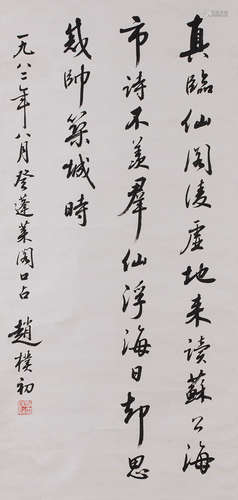 真臨仙阁凌虚地来读蘇公海
市诗不羡羣仙浮海日却思
戚帥築城時
一九八二年八月登蓬莱阁口占
趙樸初